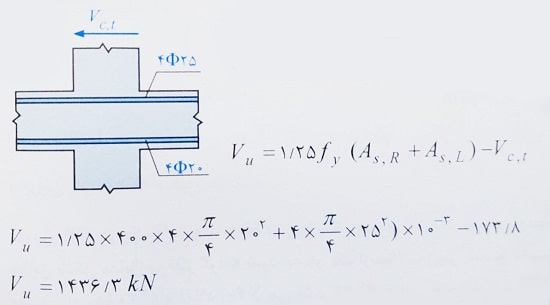 V c,t
۴Φ۲۵
۴Φ۲۰
V u = ۱/۲۵ f y (A s,R + A s,L) – V c,t
V u = ۱/۲۵ × ۴۰۰ × ۴ × π/۴ × ۲۰² + ۴ × π/۴ × ۲۵²) × ۱۰⁻³ – ۱۷۳/۸
V u = ۱۴۳۶/۳ kN